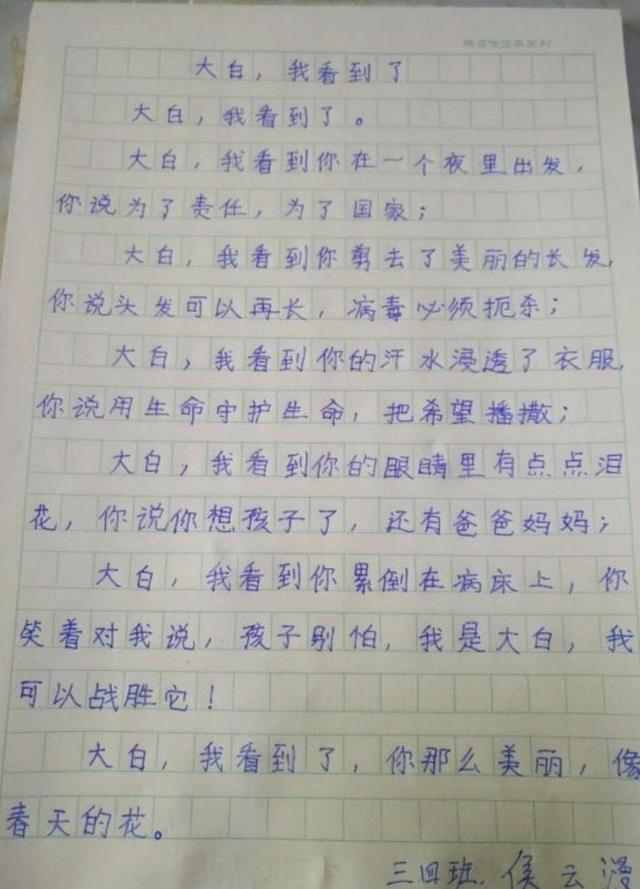 大白，我看到了
大白，我看到了。
大白，我看到你在一个夜里出发，
你说为了责任，为了国家；
大白，我看到你剪去了美丽的长发，
你说头发可以再长，病毒必须扼杀；
大白，我看到你的汗水浸透了衣服，
你说用生命守护生命，把希望播撒；
大白，我看到你的眼睛里有点点泪
花，你说你想孩子了，还有爸爸妈妈；
大白，我看到你累倒在病床上，你
笑着对我说，孩子别怕，我是大白，我
可以战胜它！
大白，我看到了，你那么美丽，像
春天的花。
三四班．侯云漫